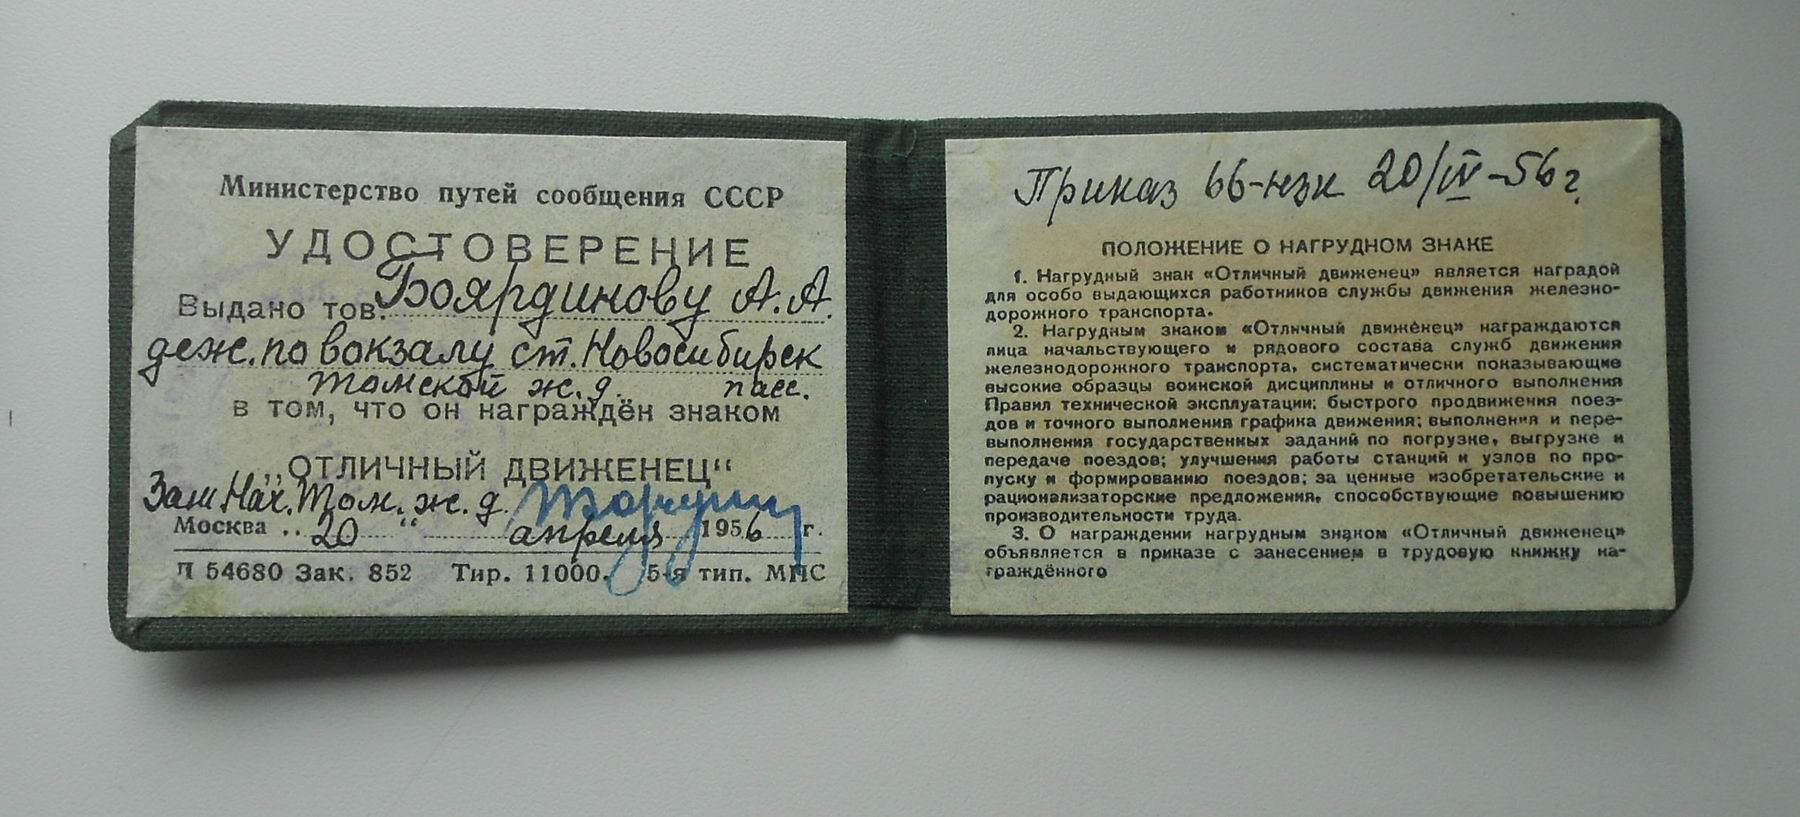 Министерство путей сообщения СССР
УДОСТОВЕРЕНИЕ
Выдано тов. Боярдинову А.А.
деж. по вокзалу ст. Новосибирск
Томской ж.д. пасс.
в том, что он награждён знаком
„ОТЛИЧНЫЙ ДВИЖЕНЕЦ“
Зам Нач. Том. ж.д.
Москва „20“ апреля 1956 г.
Л 54680 Зак. 852 Тир. 11000. 5-я тип. МПС
Приказ 66-нзк 20/IV-56 г.
ПОЛОЖЕНИЕ О НАГРУДНОМ ЗНАКЕ
1. Нагрудный знак «Отличный движенец» является наградой
для особо выдающихся работников службы движения железно-
дорожного транспорта.
2. Нагрудным знаком «Отличный движенец» награждаются
лица начальствующего и рядового состава служб движения
железнодорожного транспорта, систематически показывающие
высокие образцы воинской дисциплины и отличного выполнения
Правил технической эксплуатации; быстрого продвижения поез-
дов и точного выполнения графика движения; выполнения и пере-
выполнения государственных заданий по погрузке, выгрузке и
передаче поездов; улучшения работы станций и узлов по про-
пуску и формированию поездов; за ценные изобретательские и
рационализаторские предложения, способствующие повышению
производительности труда.
3. О награждении нагрудным знаком «Отличный движенец»
объявляется в приказе с занесением в трудовую книжку на-
граждённого